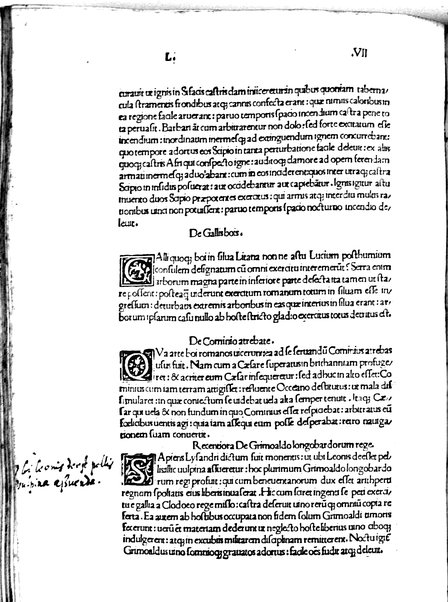 L.
.VII
curauit ut ignis in Sifacis castris dam iniiceretur: in quibus quoniam taberna/
cula stramentis frondibus atq; cannis confecta erant: quæ nimiis caloribus in
ea regione facile aruerant: paruo temporis spacio incendium castra pene to
ta peruasit. Barbari ãt cum arbitrarentur non dolo: sed forte excitatum esse
incendium: inordinatim inermesq; ad extinguendum ignem concurrebant:
quo tempore adortus eos Scipio in tanta perturbatione facile deleuit: ex aliis
quoq; castris Afri qui conspecto igne: auditoq; clamore ad opem ferendam
armati inermesq; aduolabant: cum in eos incideren quos inter utraq; castra
Scipio in insidiis posuerat: aut occidebantur aut capiebãtur. Ignis igitur astu
inuento duos Scipio præpotentes exercitus: qui armis atq; interdiu multis ra
tionibus uinci non potuissent: paruo temporis spacio nocturno incendio de
leuit.
De Gallis bois.
GAlli quoq; boi in silua Litana non ne astu Lucium posthumium
consulem designatum cũ omni exercitu interemerũt? Serra enim
arborum magna parte in inferiore parte defecta ita tamen ut sta
re possent: posteaq̃ uiderunt exercitum romanorum totum in siluam esse in
gressum: deturbatis extremis arboribus in eas que interius in silua erant: ar
borum ipsarum casu nullo ab hoste stricto gladio exercitus totus detritus est.
De Cominio atrebate.
QVa arte boi romanos uicerunt: ea ad se seruandũ Cominius atrebas
usus fuit. Nam cum a Cæsare superatus in brithanniam profuge
ret: & acriter eum Cæsar insequeretur: sed adhuc in alto esset: Co
minius cum iam terram attigisset: refluente Oceano destitutus: ut mala dis
simularet: in quæ coniectum se uidebat uela alta semper tenuit. Itaq; Cæ/
sar qui uela & non fundum in quo Cominius esset respiciebat: arbitratus eũ
foelicibus uentis agi: quia iam assequi eum posse desperabat: retro nauiga/
tionem suam conuertit.
Recentiora De Grimoaldo longobardorum rege.
SApiens Lysandri dictum fuit monentis: ut ubi Leonis deesset pel
lis: illic uulpina assueretur: hoc plurimum Grimoaldo longobardo
rum regi profuit: qui cum beneuentanorum dux esset arithperti
regnum spoliatis eius liberis inuaserat. Hic cum sciret ingens se peti exerci/
tu e gallia a Clodoeo rege misso: castra deseruit uino rerũq; omniũ copia re
ferta. Ea autem ab hostibus occupata non fidem solum Grimoaldi timoris
fecerunt: uerũ ẽt materiam dederunt ut neglecto hoste liberius uino ciboq;
indulgerent: atq; in excubiis militarem disciplinam remitterent. Noctu igiť
Grimoaldus uino somnioq; grauatos adortus: facile oẽs fudit atq; deleuit.
si leonis deest pellis
vulpina assuenda.